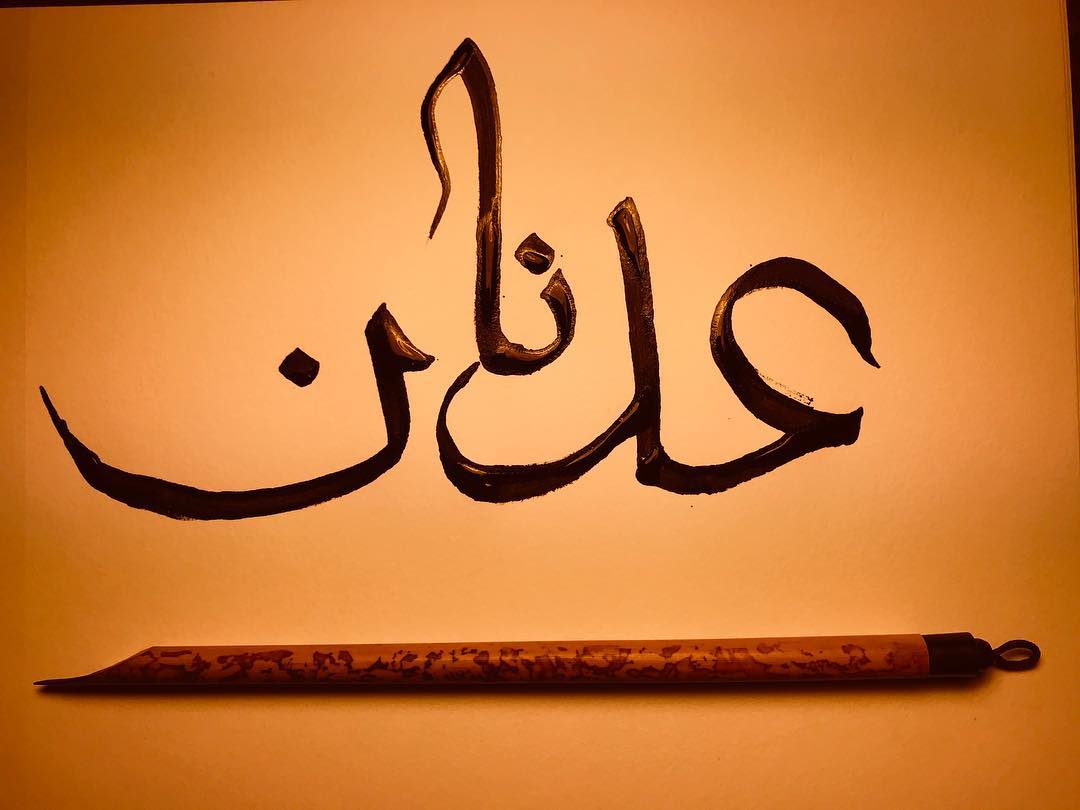 عدنان